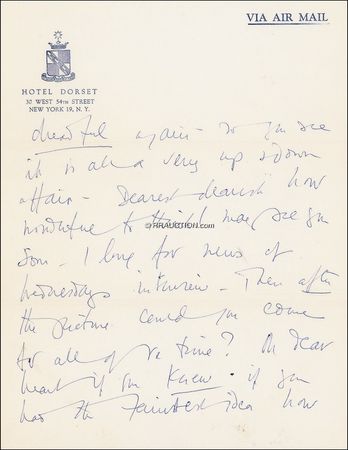 VIA AIR MAIL
HOTEL DORSET
30 WEST 54TH STREET
NEW YORK 19, N. Y.
dreadful again - so you see
it is all a very up & down
affair - Dearest dearest how
wonderful to think I may see you
©RRAUCTION.COM
soon - I long for news of
Wednesdays interview - Then after
the picture could you come
for all of the time? Oh dear
heart if you knew - if you
had the faintest idea how